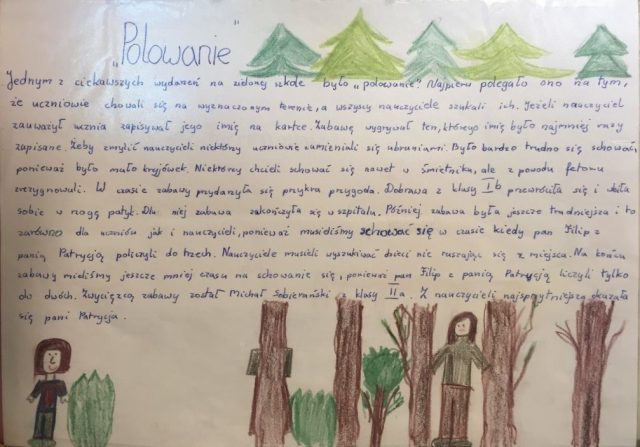 „Polowanie"
Jednym z ciekawszych wydarzeń na zielonej szkole było „polowanie". Najpierw polegało ono na tym,
że uczniowie chowali się na wyznaczonym terenie, a wszyscy nauczyciele szukali ich. Jeżeli nauczyciel
zauważył ucznia zapisywał jego imię na kartce. Zabawę wygrywał ten, którego imię było najmniej razy
zapisane. Żeby zmylić nauczycieli niektórzy uczniowie zamieniali się ubraniami. Było bardzo trudno się schować,
ponieważ było mało kryjówek. Niektórzy chcieli schować się nawet w śmietniku, ale z powodu fetoru
zrezygnowali. W czasie zabawy przydarzyła się przykra przygoda. Dobrawa z klasy I b przewróciła się i wbiła
sobie w nogę patyk. Dla niej zabawa zakończyła się w szpitalu. Później zabawa była jeszcze trudniejsza i to
zarówno dla uczniów jak i nauczycieli, ponieważ musieliśmy schować się w czasie kiedy pan Filip z
panią Patrycją policzyli do trzech. Nauczyciele musieli wyszukiwać dzieci nie ruszając się z miejsca. Na końcu
zabawy mieliśmy jeszcze mniej czasu na schowanie się, ponieważ pan Filip z panią Patrycją liczyli tylko
do dwóch. Zwycięzcą zabawy został Michał Sobierański z klasy II a. Z nauczycieli najsprytniejszą okazała
się pani Patrycja.